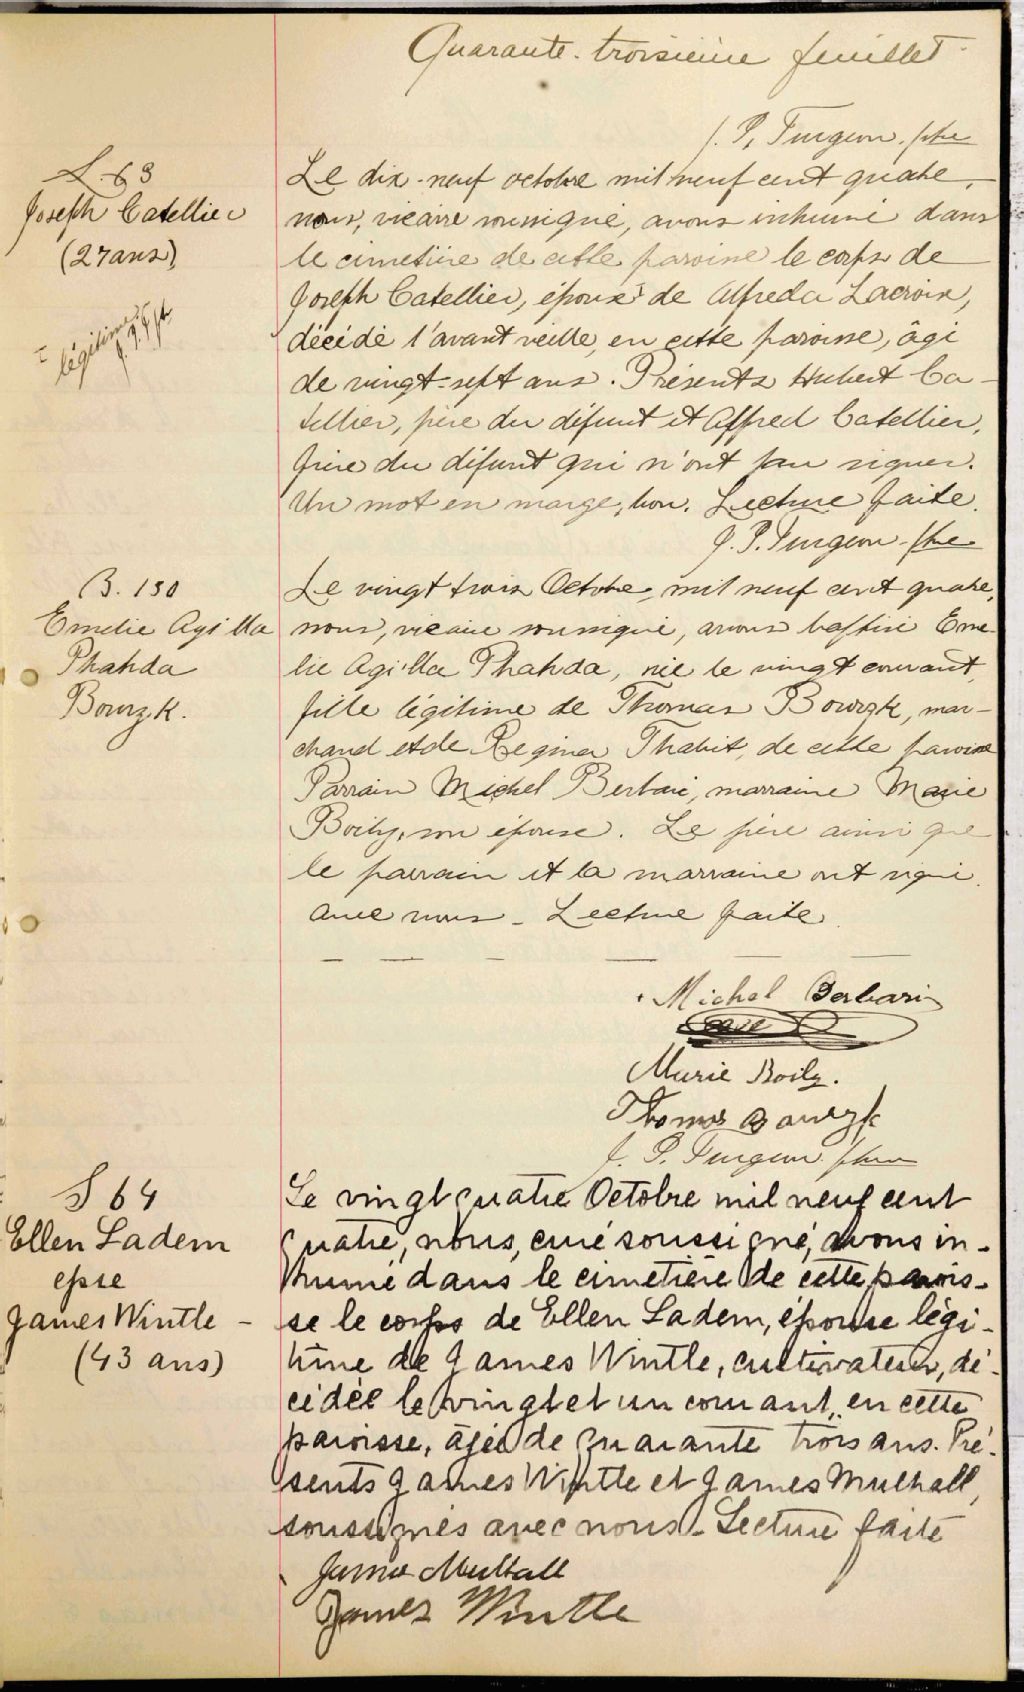 Quarante-troisième feuillet
J. P. Turgeon, ptre
S 63
Joseph Catellier
(27 ans)
légitime J. P. T. ptr
Le dix-neuf octobre mil neuf cent quatre,
nous, vicaire soussigné, avons inhumé dans
le cimetière de cette paroisse le corps de
Joseph Catellier, époux de Alfreda Lacroix,
décédé l'avant veille, en cette paroisse, âgé
de vingt-sept ans. Présents Hubert Ca-
tellier, père du défunt et Alfred Catellier,
frère du défunt qui n'ont pu signer.
Un mot en marge, bon. Lecture faite.
J. P. Turgeon, ptre
B. 130
Emelie Agilla
Phahda
Bowzk.
Le vingt trois Octobre, mil neuf cent quatre,
nous, vicaire soussigné, avons baptisé Eme-
lie Agilla Phahda, née le vingt courant,
fille légitime de Thomas Bowzk, mar-
chand et de Regina Thabit, de cette paroisse
Parrain Michel Berbari, marraine Marie
Boily, son épouse. Le père ainsi que
le parrain et la marraine ont signé
avec nous - Lecture faite.
Michel Berbari
Marie Boily.
Thomas Bowzk
J. P. Turgeon, ptre
S 64
Ellen Ladem
epse
James Wintle -
(43 ans)
Le vingt quatre Octobre mil neuf cent
quatre, nous, curé soussigné, avons in-
humé dans le cimetière de cette parois-
se le corps de Ellen Ladem, épouse légi-
time de James Wintle, cultivateur, dé-
cédée le vingt et un courant, en cette
paroisse, âgée de quarante trois ans. Pré-
sents James Wintle et James Mulhall,
soussignés avec nous - Lecture faite
James Mulhall
James Wintle